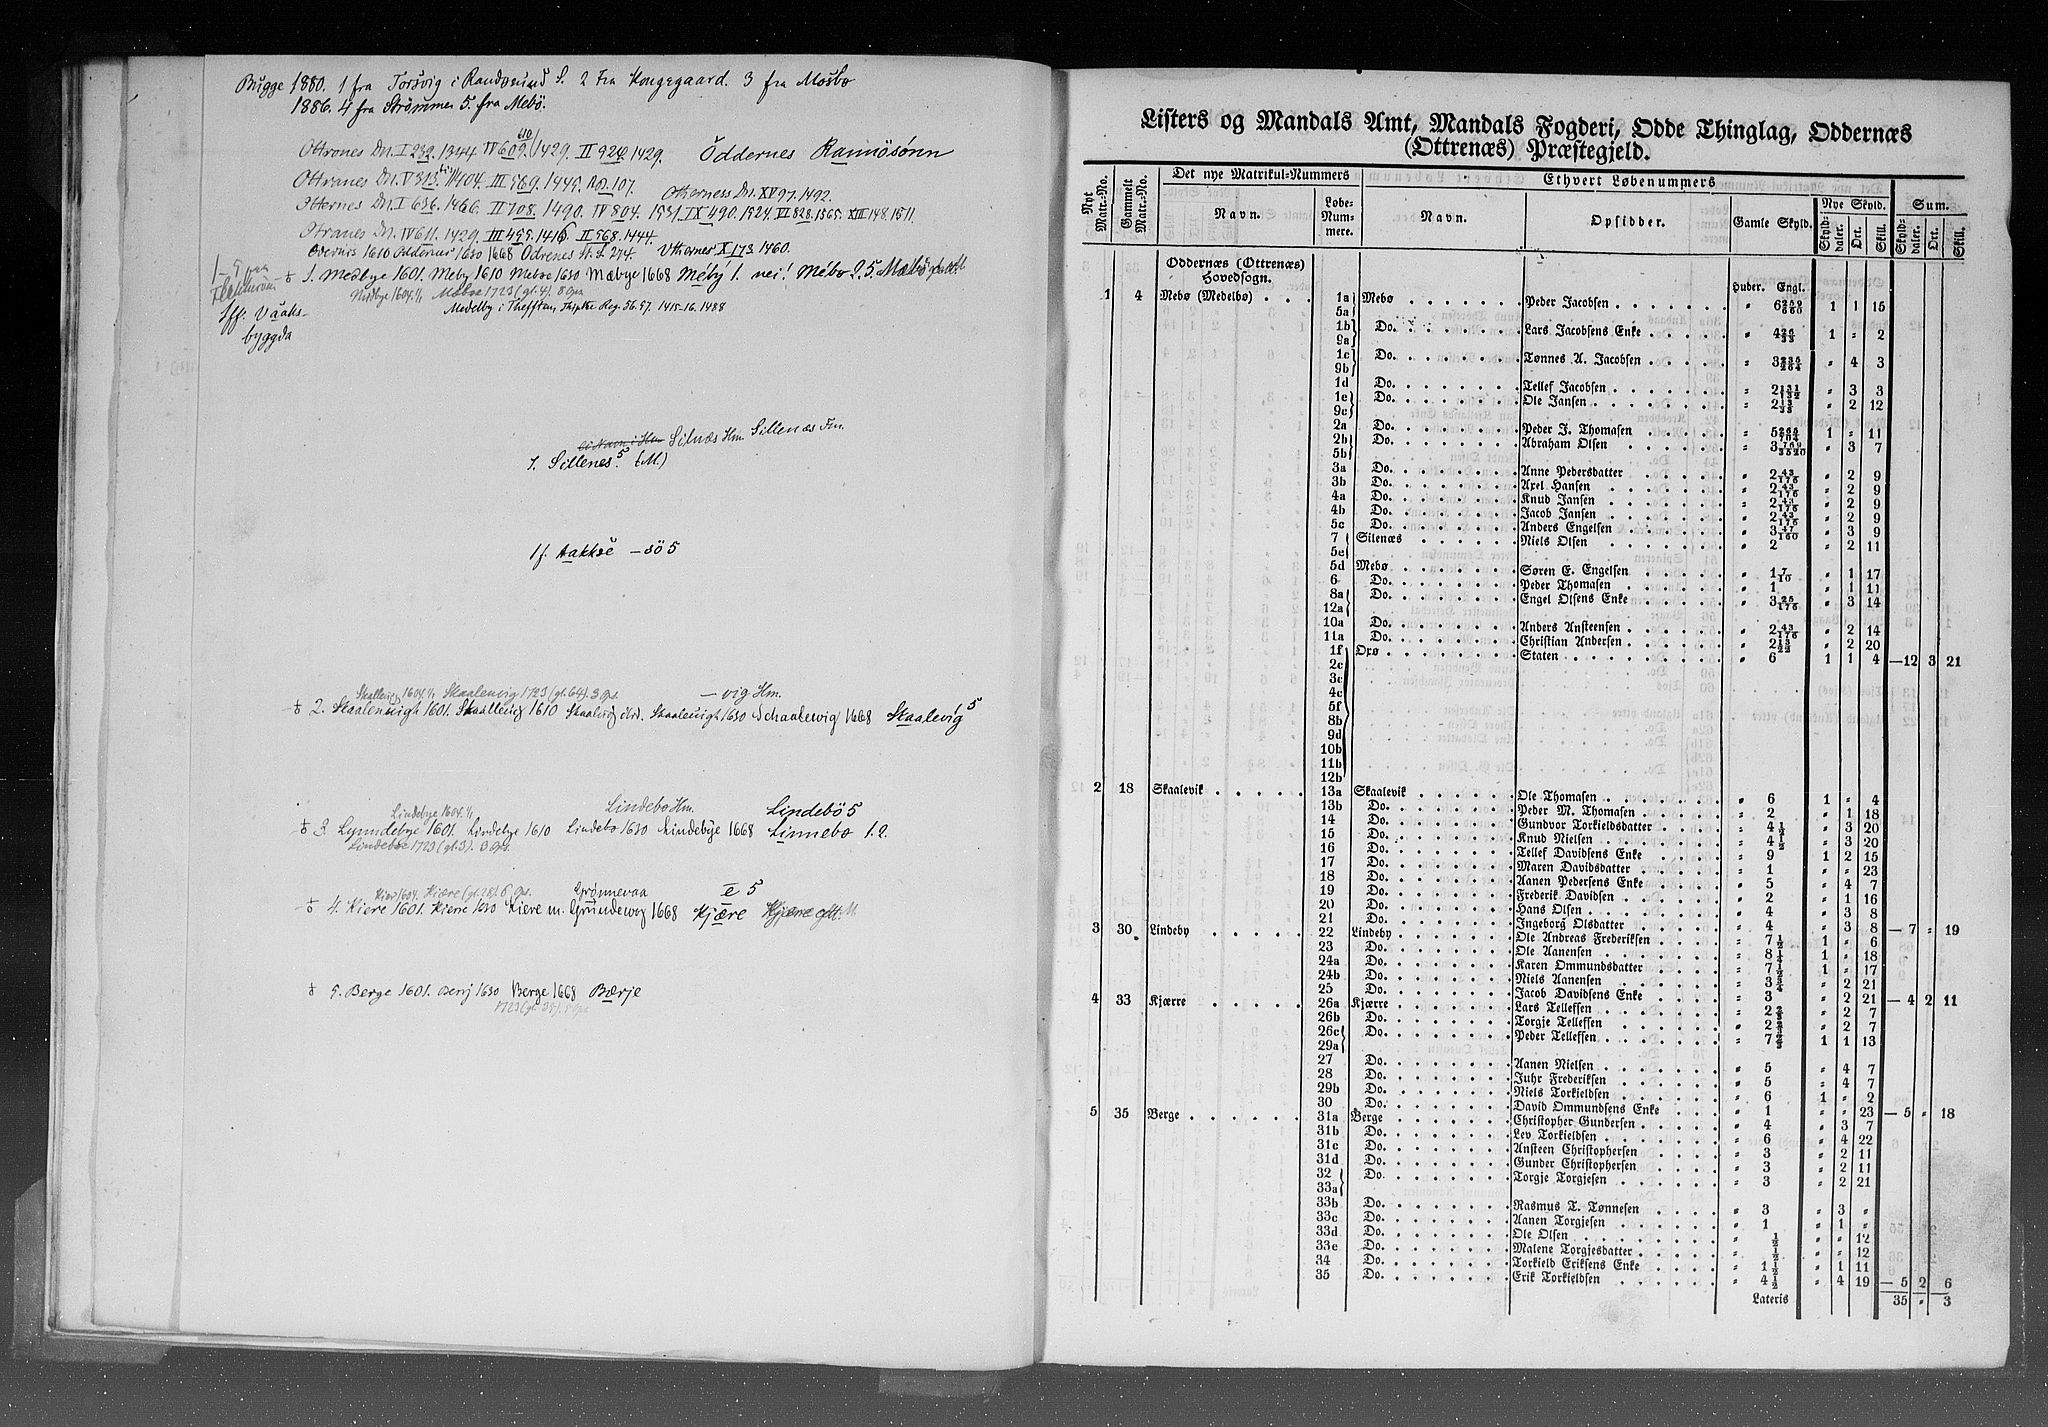 Bugge 1880. 1 fra Torsvig i Randøsund S. 2 Fra Kongsgaard. 3 fra Mosbø
1886. 4 fra Strømmen 5. fra Mebö.
Ottrones Dn. I 232. 1344 IV 609. 1429. II 924. 1429. Öddernes
Ottranes Dn. V 313. 1404. III 569. 1445. 107.
Otterness Dn. XV 97. 1492.
Otternes Dn. I 636. 1466 II 708. 1490. IV 804. 1531. IX 490. 1524. VI 828. 1565. XIII 148. 1511.
Ottranes Dn. IV 611. 1429. III 455. 1416 II 568. 1444.
1610 Oddernæs 1630 1668 Odrenes St. S. 274. Vtternes X 173 1460.
1. Medbye 1601. Meby 1610 Mebøe 1630 Mæbye 1668 Méby 1. nei! Mébø 2. 5.
Medbye 1604. 1/1 Mebøe 1723 (gl. 4). 8 Ops
Medelby i
1415-16. 1488
byggda
Silnæs Hm Sillenæs Fm.
1. Sillenes. 5 (M.)
1f. – sö 5
1604. 1/1 Skaalevig 1723 (gl. 64). 3 Ops. – vig Hm.
2. Skaaleuigh 1601. Skaalleuig 1610 Skaaleuigh 1630 Schaalewig 1668 Skaalevig 5
Lindebye 1604. 1/1 Lindebo Hm. Lindebö 5
3. Lynndebye 1601. Lindebye 1610 Lindebø 1630 Lindebye 1668 Linnebø 1. 2.
Lindebøe 1723 (gl. 3). 3 Ops.
Kier 1604. Kiære Grønnevaa e 5
4. Kiere 1601. Kiere 1630 Kiere m. Grundewig 1668 Kjære
5. Berge 1601. Berij 1630 Berge 1668 Bærje
1723 (gl. 35).
Listers og Mandals Amt, Mandals Fogderi, Odde Thinglag, Oddernæs
(Ottrenæs) Præstegjeld.
Nyt Matr.-No. Gammelt Matr.-No. Det nye Matrikul-Nummers Ethvert Løbenummers Sum.
Navn. Løbe-Num-mere. Navn. Opsidder. Gamle Skyld. Nye Skyld. Skyld-daler. Ort. Skill.
Skyld-daler. Ort. Skill.
Oddernæs (Ottrenæs)
Hovedsogn. Huder. Engl.
1 4 Mebø (Medelbø) . . . 1a Mebø Peder Jacobsen " 6 259/660 1 1 15
5a
1b Do. Lars Jacobsens Enke " 4 26/33 1 " 2
9a
1c Do. Tønnes A. Jacobsen " 3 235/264 " 4 3
9b
1d Do. Tellef Jacobsen " 2 131/132 " 3 3
1e Do. Ole Jansen " 2 13/33 " 2 12
9c
2a Do. Peder J. Thomasen " 5 265/704 1 " 11
2b Do. Abraham Olsen " 3 769/3520 " 3 7
5b
3a Do. Anne Pedersdatter " 2 43/176 " 2 9
3b Do. Axel Hansen " 2 43/176 " 2 9
4a Do. Knud Jansen " 2 43/176 " 2 9
4b Do. Jacob Jansen " 2 43/176 " 2 9
5c Do. Anders Engelsen " 3 47/160 " 3 9
7 Silenæs Niels Olsen " 2 " 2 11
5e
5d Mebø Søren E. Engelsen " 1 7/10 " 1 17
6 Do. Peder Thomasen " 1 " 1 11
8a Do. Engel Olsens Enke " 3 25/176 " 3 14
12a
10a Do. Anders Ansteensen " 2 43/176 " 2 14
11a Do. Christian Andersen " 2 13/22 " 2 20
1f Oxø Staten " 6 1 1 4 —12 3 21
2c
3c
4c
5f
8b
9d
10b
11b
12b
2 18 Skaalevik 13a Skaalevik Ole Thomasen " 6 1 " 4
13b Do. Peder M. Thomasen " 2 " 1 18
14 Do. Gundvor Torkieldsdatter " 4 1/2 " 3 20
15 Do. Knud Nielsen " 4 1/2 " 3 20
16 Do. Tellef Davidsens Enke " 9 1 2 15
17 Do. Maren Davidsdatter " 1 " " 23
18 Do. Aanen Pedersens Enke " 5 " 4 7
19 Do. Frederik Davidsen " 2 " 1 16
20 Do. Hans Olsen " 4 " 3 8
21 Do. Ingeborg Olsdatter " 4 " 3 8 —7 " 19
3 30 Lindeby 22 Lindeby Ole Andreas Frederiksen " 7 1/2 1 " 6
23 Do. Ole Aanensen " 8 1/4 1 " 18
24a Do. Karen Ommundsdatter " 7 1/2 1 " 17
24b Do. Niels Aanensen " 3 3/4 " 2 21
25 Do. Jacob Davidsens Enke " 3 " 2 21 —4 2 11
4 33 Kjærre 26a Kjærre Lars Tellefsen " 2 2/3 " 2 7
26b Do. Torgje Tellefsen " 2 2/3 " 2 7
26c Do. Peder Tellefsen " 7 2/3 1 1 13
29a
27 Do. Aanen Nielsen " 5 " 4 7
28 Do. Juhr Frederiksen " 5 " 4 7
29b Do. Niels Torkieldsen " 6 1 " 2
30 Do. David Ommundsens Enke " 1 " " 23 —5 " 18
5 35 Berge 31a Berge Christopher Gundersen " 4 " 3 7
31b Do. Lev Torkieldsen " 6 " 4 22
31c Do. Ansteen Christophersen " 3 " 2 11
31d Do. Gunder Christophersen " 3 " 2 11
32 Do. Torgje Torgjesen " 3 " 2 21
33a
33b Do. Rasmus T. Tønnesen " 3 " 3 "
33c Do. Aanen Torgjesen " 1 " 1 "
33d Do. Ole Olsen " 1/2 " " 12
33e Do. Malene Torgjesdatter " 1/2 " " 12
34 Do. Torkield Eriksens Enke " 1 1/2 " 1 11
35 Do. Erik Torkieldsen " 4 1/2 " 4 19 —5 2 6
Lateris 35 " 3